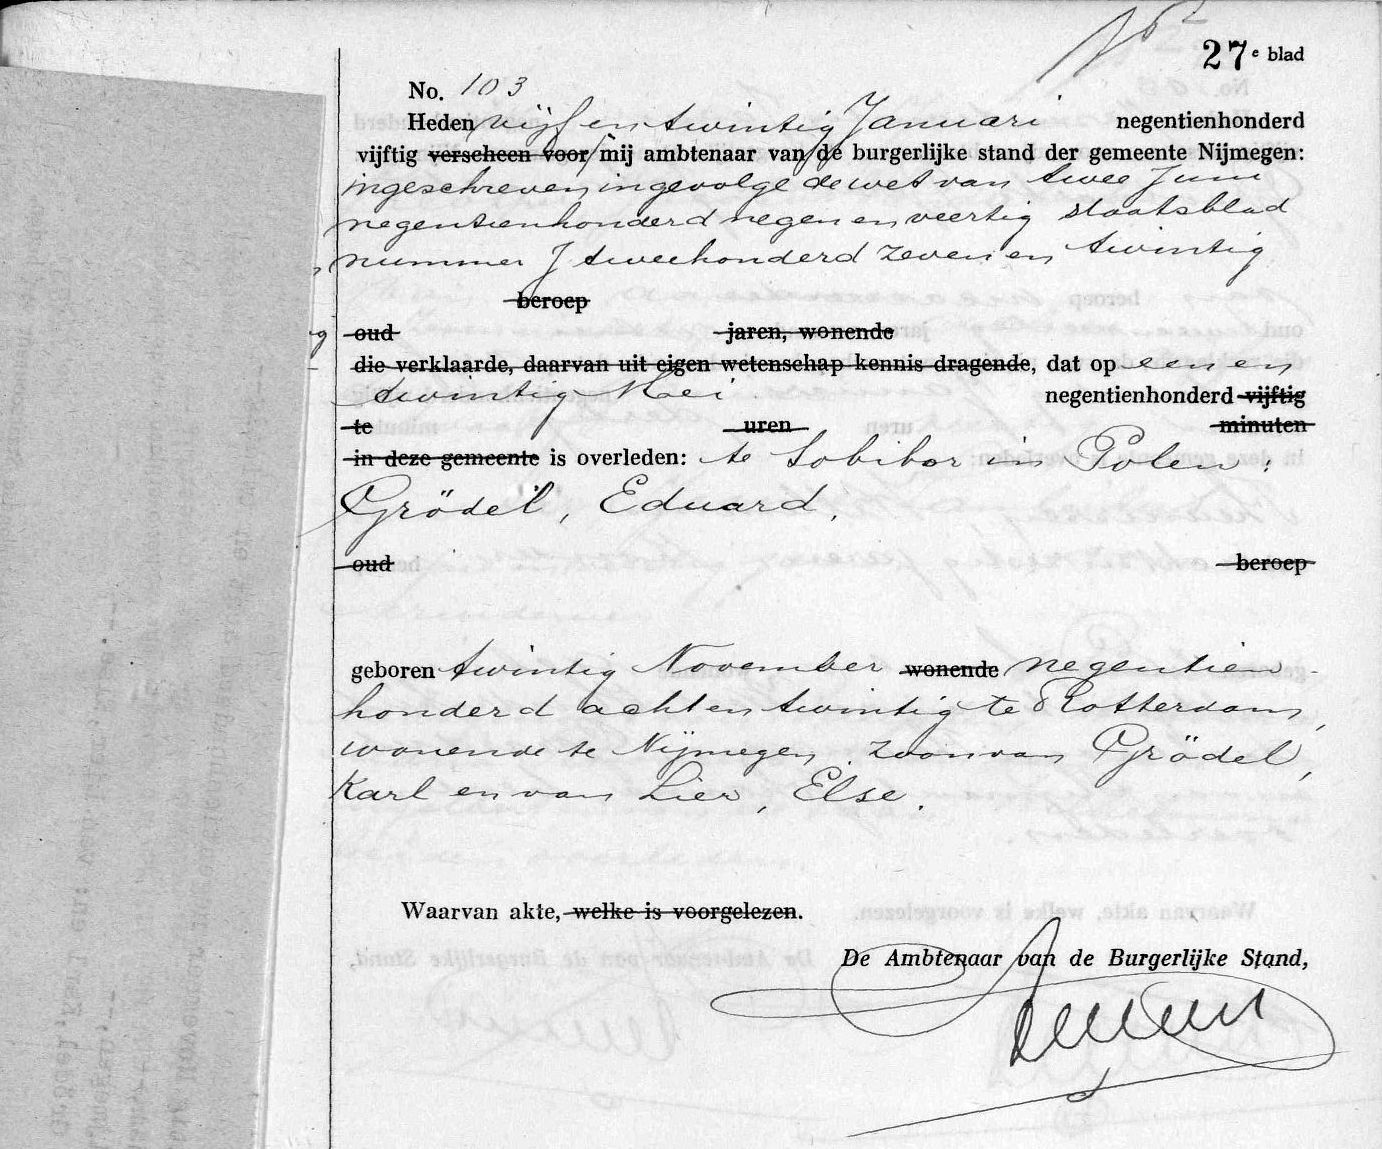 27e blad
No. 103
Heden vijf en twintig Januari negentienhonderd
vijftig verscheen voor mij ambtenaar van de burgerlijke stand der gemeente Nijmegen:
ingeschreven ingevolge de wet van twee Juni
negentienhonderd negen en veertig staatsblad
nummer J tweehonderd zeven en twintig
beroep
oud jaren, wonende
die verklaarde, daarvan uit eigen wetenschap kennis dragende, dat op een en
twintig Mei negentienhonderd vijftig
te uren minuten
in deze gemeente is overleden: te Sobibor in Polen:
Grödel, Eduard,
oud beroep
geboren twintig November wonende negentien-
honderd acht en twintig te Rotterdam,
wonende te Nijmegen, zoon van Grödel,
Karl en van Lier, Else.
Waarvan akte, welke is voorgelezen.
De Ambtenaar van de Burgerlijke Stand,